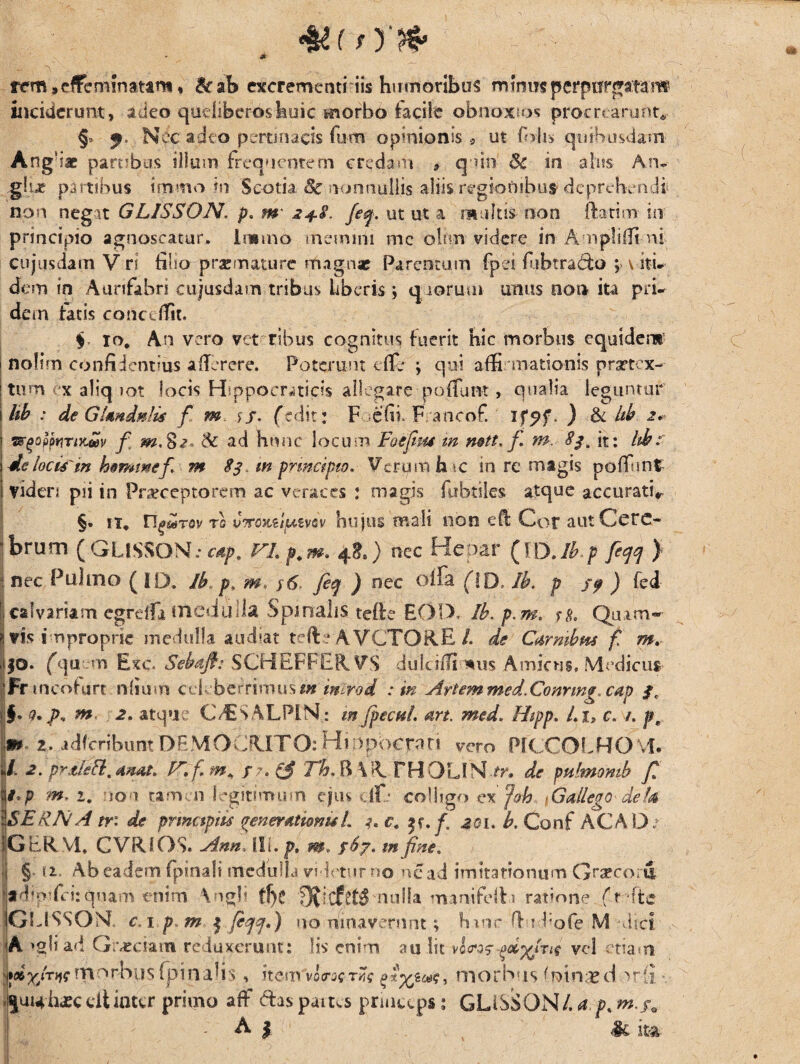 ( 5 )
rem, effeminatam, & ab excrementitiis humoribus minus perpurgatam
inciderunt, adeo que liberos huic morbo facile obnoxios procrearunt.
§. 9. Nec adeo pertinacis sum opinionis, ut solis quibusdam
Angliæ partibus illum frequentem credam, quin & in aliis An-
gliæ partibus immo in Scotia & nonnullis aliis regionibus deprehendi
non negat GLISSON. p. m. 248. seq. ut ut a multis non statim in
principio agnoscatur. Immo memini me olim videre in Amplissimi
cujusdam Viri filio præmature magnæ Parentum spei subtracto; iti-
dem in Aurifabri cujusdam tribus liberis; quorum unus non ita pri-
dem fatis concessit.
§. 10. An vero veteribus cognitus fuerit hic morbus equidem
nolim confidentius asserere. Poterunt esse; qui affirmationis prætex-
tum ex aliquot locis Hippocraticis allegare possunt, qualia leguntur
lib : de Glandulis f. m. 55. (edit: Foësii. Francof. 1595.) & lib 2.
προῤῥητικῶν f. m. 82. & ad hunc locum Foesius in nott. f. m. 83. it: lib:
de locis in homine f. m 83. in principio. Verum hac in re magis possunt
videri pii in Præceptorem ac veraces: magis subtiles atque accurati.
§. 11. Πρῶτον τὸ ὑποκείμενον hujus mali non est Cor aut Cere-
brum (GLISSON: cap. VI. p. m. 48.) nec Hepar (ID. Ib. p seqq )
nec Pulmo ( ID. Ib. p. m. 56. seq ) nec ossa (ID. Ib. p 59 ) sed
calvariam egressa medulla Spinalis teste EOD. Ib. p. m. 58. Quam-
vis improprie medulla audiat teste AVCTORE l. de Carnibus f. m.
30. (quem Exc. Sebast: SCHEFFERVS dulcissimus Amicus, Medicus
Francofurtensium celeberrimus in introd : in Artem med. Conring. cap 3.
§. 9. p. m. 2. atque CÆSALPIN: in specul. art. med. Hipp. l. 1, c. 1. p.
m. 2. adscribunt DEMOCRITO: Hippocrati vero PICCOLHOMI.
l. 2. prælect. anat. V. f. m. 57. & Th. BARTHOLIN tr. de pulmonib s.
1. p m. 2. non tamen legitimum ejus esse colligo ex Joh. Gallego de la
SERNA tr: de principiis generationis l. 2. c. 35. f. 201. b. Conf ACAD:
GERM. CVRIOS. Ann. III. p. m. 567. in fine.
§. 12. Ab eadem spinali medulla videtur no nê ad imitationum Græcorũ
adipisci: quam enim Angli the Rickets nulla manifesta ratione (teste
GLISSON. c. 1 p. m 3 seqq.) nominaverunt; hunc studiose Medici
Angli ad Græciam reduxerunt: Iis enim audit νόσος ῥαχίτις vel etiam
ῥαχίτης morbus spinalis, item νόσος τῆς ῥάχεως, morbus spinæ dorsi
quia hæc est inter primo affectas partes princeps; GLISSON l. a. p. m. 5.
A 3 & ita